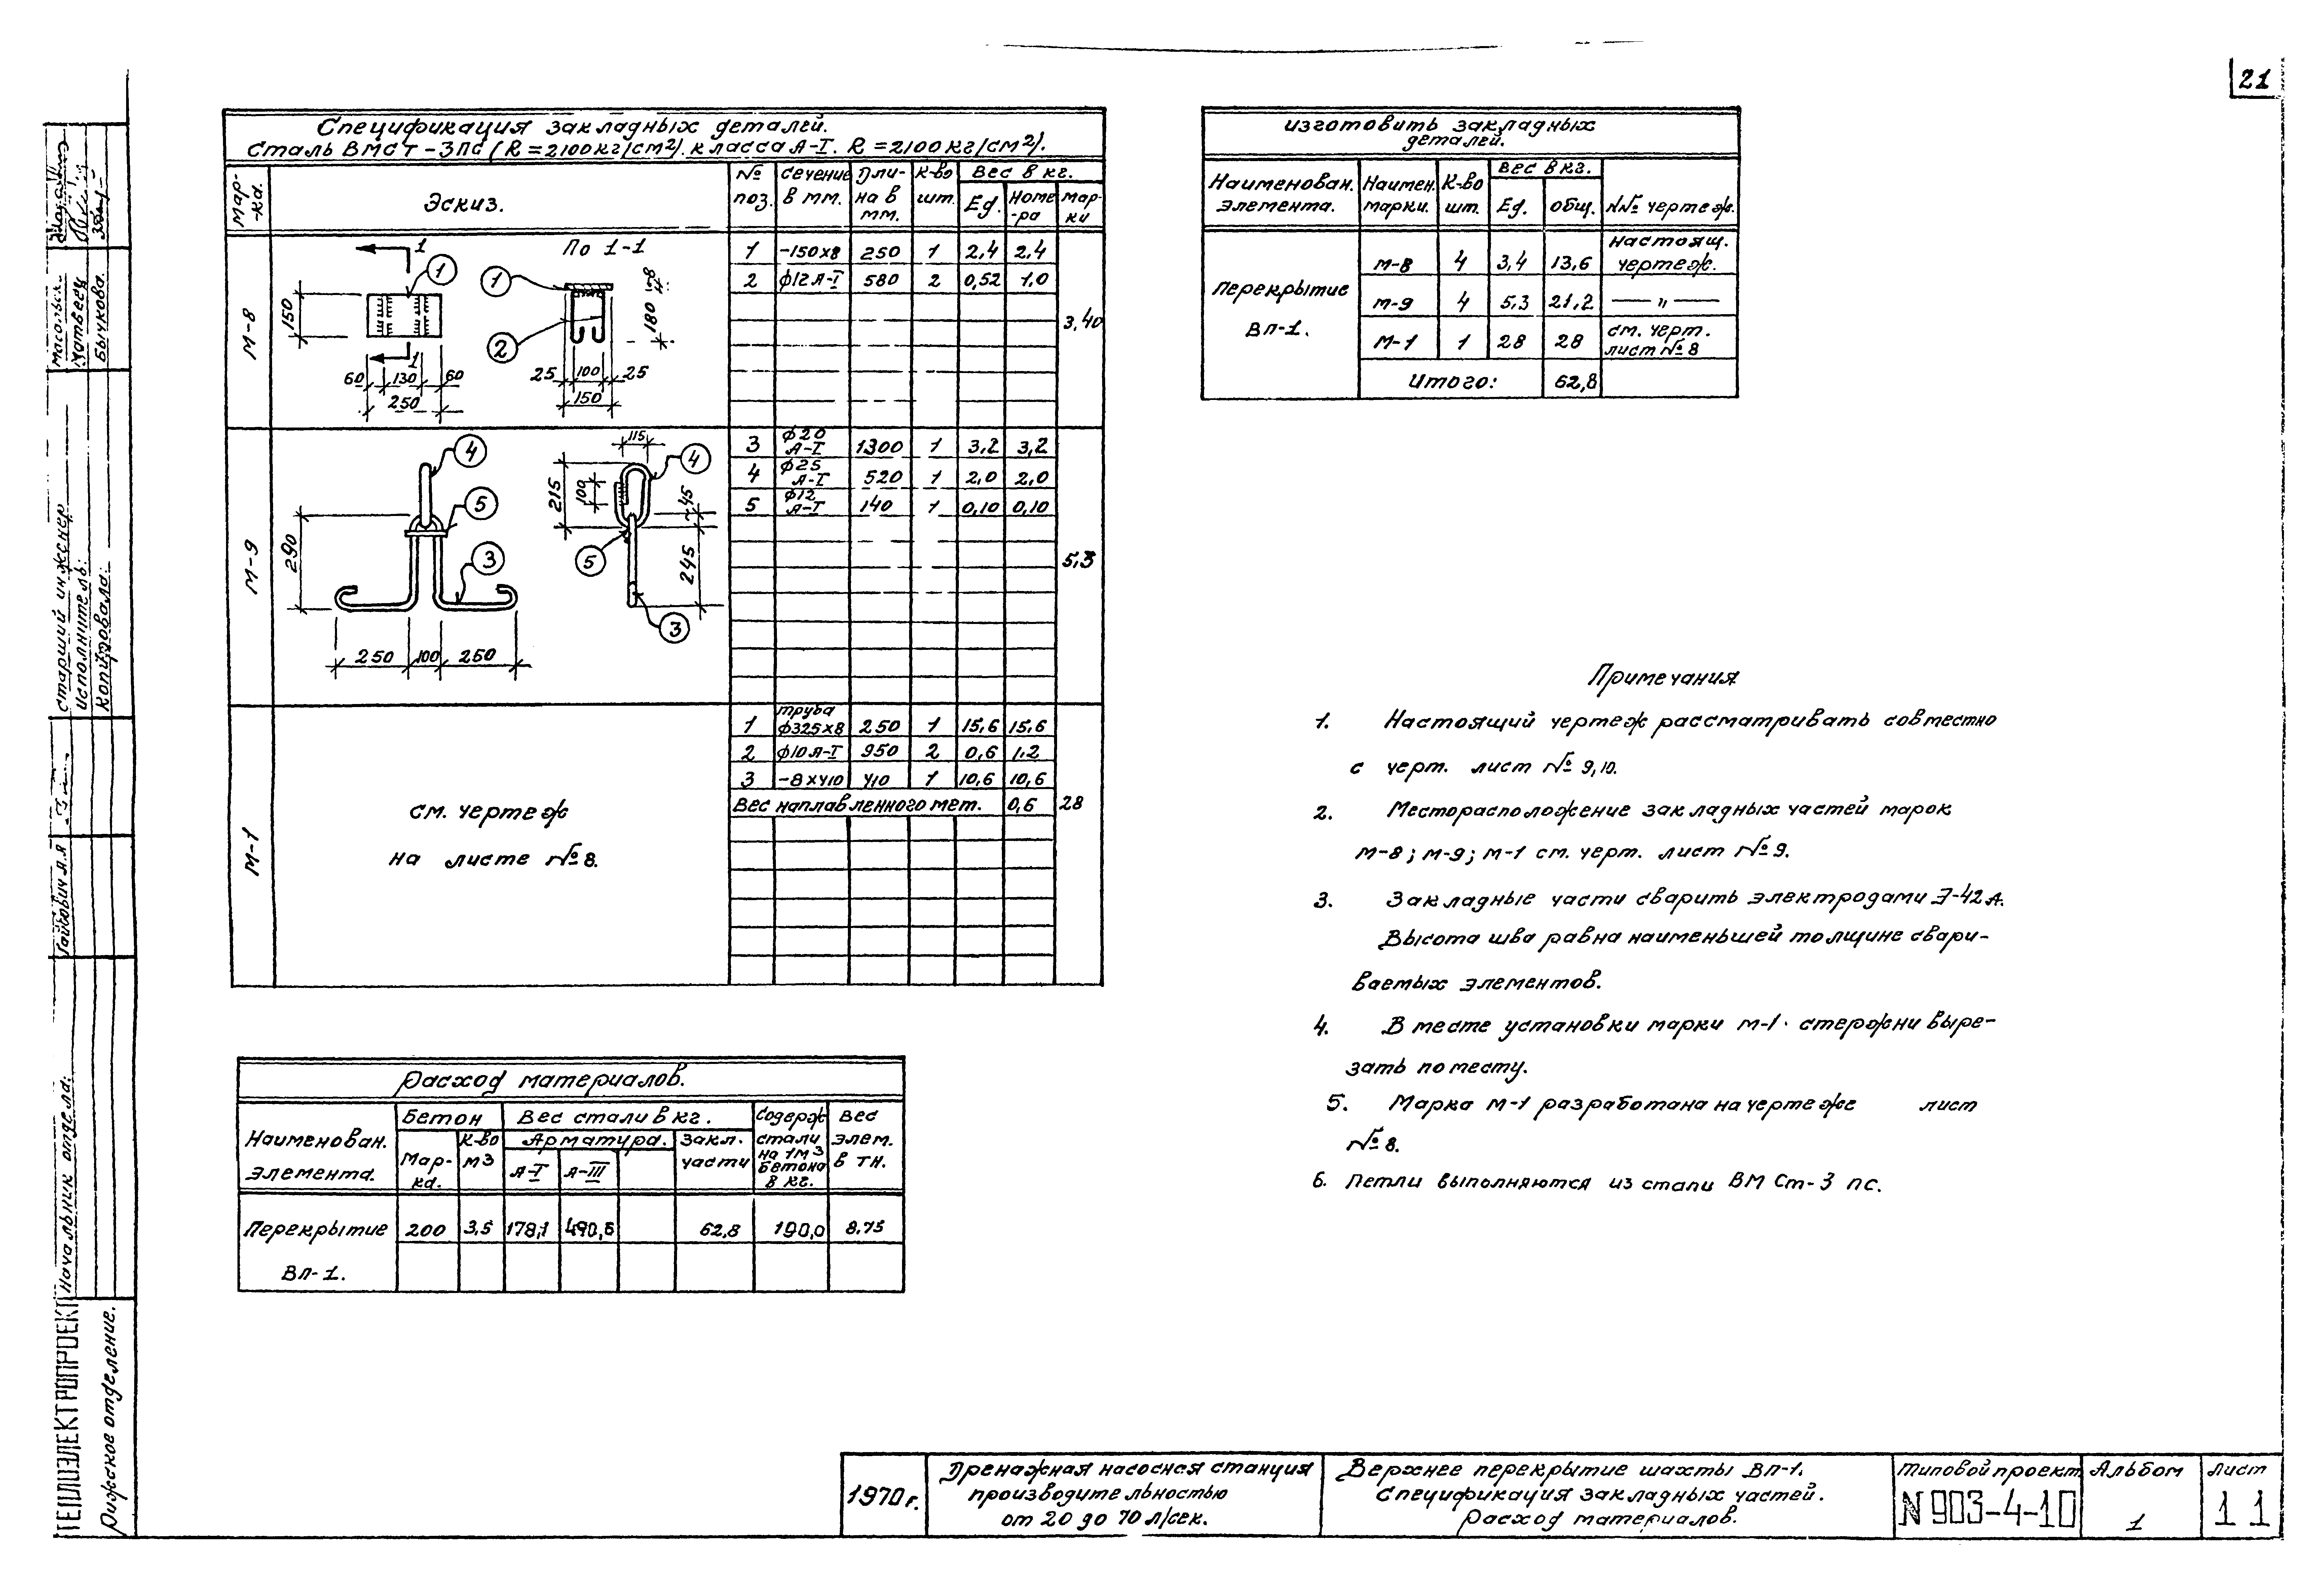 21
Спецификация закладных деталей.
Сталь ВМСт-3пс (R=2100кг/см²). класса А-I. R=2100кг/см²).
Мар-ка. Эскиз. № поз. Сечение в мм. Дли-на в мм. К-во шт. Вес в кг.
Ед. Номе-ра Мар-ки
М-8
1 1 По 1-1 1
150
60 130 60
250
2 180
25 100 25
150
1 -150х8 250 1 2,4 2,4
2 ф12А-I 580 2 0,52 1,0
3,40
М-9
4 5 3
290
250 100 250
115 4
215 100 45
5 245
3
3 ф20 А-I 1300 1 3,2 3,2
4 ф25 А-I 520 1 2,0 2,0
5 ф12 А-I 140 1 0,10 0,10
5,3
М-1
см. чертеж
на листе №8.
1 труба ф325х8 250 1 15,6 15,6
2 ф10А-I 950 2 0,6 1,2
3 -8х410 410 1 10,6 10,6
Вес наплавленного мет. 0,6 28
изготовить закладных
деталей.
Наименован. элемента. Наимен. марки. К-во шт. Вес в кг. NN° чертеж.
Ед. общ.
Перекрытие
Вп-1.
М-8 4 3,4 13,6 Настоящ. чертеж.
М-9 4 5,3 21,2 — " —
М-1 1 28 28 см. черт. лист №8
Итого: 62,8
Примечания
1. Настоящий чертеж рассматривать совместно
с черт. лист № 9,10.
2. Месторасположение закладных частей марок
М-8; М-9; М-1 см. черт. лист №9.
3. Закладные части сварить электродами Э-42А.
Высота шва равна наименьшей толщине свари-
ваемых элементов.
4. В месте установки марки М-1. стержни выре-
зать по месту.
5. Марка М-1 разработана на чертеже лист
№8.
6. Петли выполняются из стали ВМ Ст-3 пс.
Расход материалов.
Наименован. элемента. Бетон Вес стали в кг. Содерж. стали на 1м3 бетона в кг. Вес элем. в тн.
Мар-ка. К-во м3 Арматура. Закл. части
А-I А-III
Перекрытие 200 3,5 178,1 490,6 62,8 190,0 8,75
Вп-1.
1970г.
Дренажная насосная станция
производительностью
от 20 до 70 л/сек.
Верхнее перекрытие шахты Вп-1.
Спецификация закладных частей.
Расход материалов.
Типовой проект
N 903-4-10
Альбом
1
Лист
11
ТЕПЛОЭЛЕКТРОПРОЕКТ
Рижское отделение.
Начальник отдела:
Старший инженер
исполнитель:
Копировала:
Матвеец
Бычкова